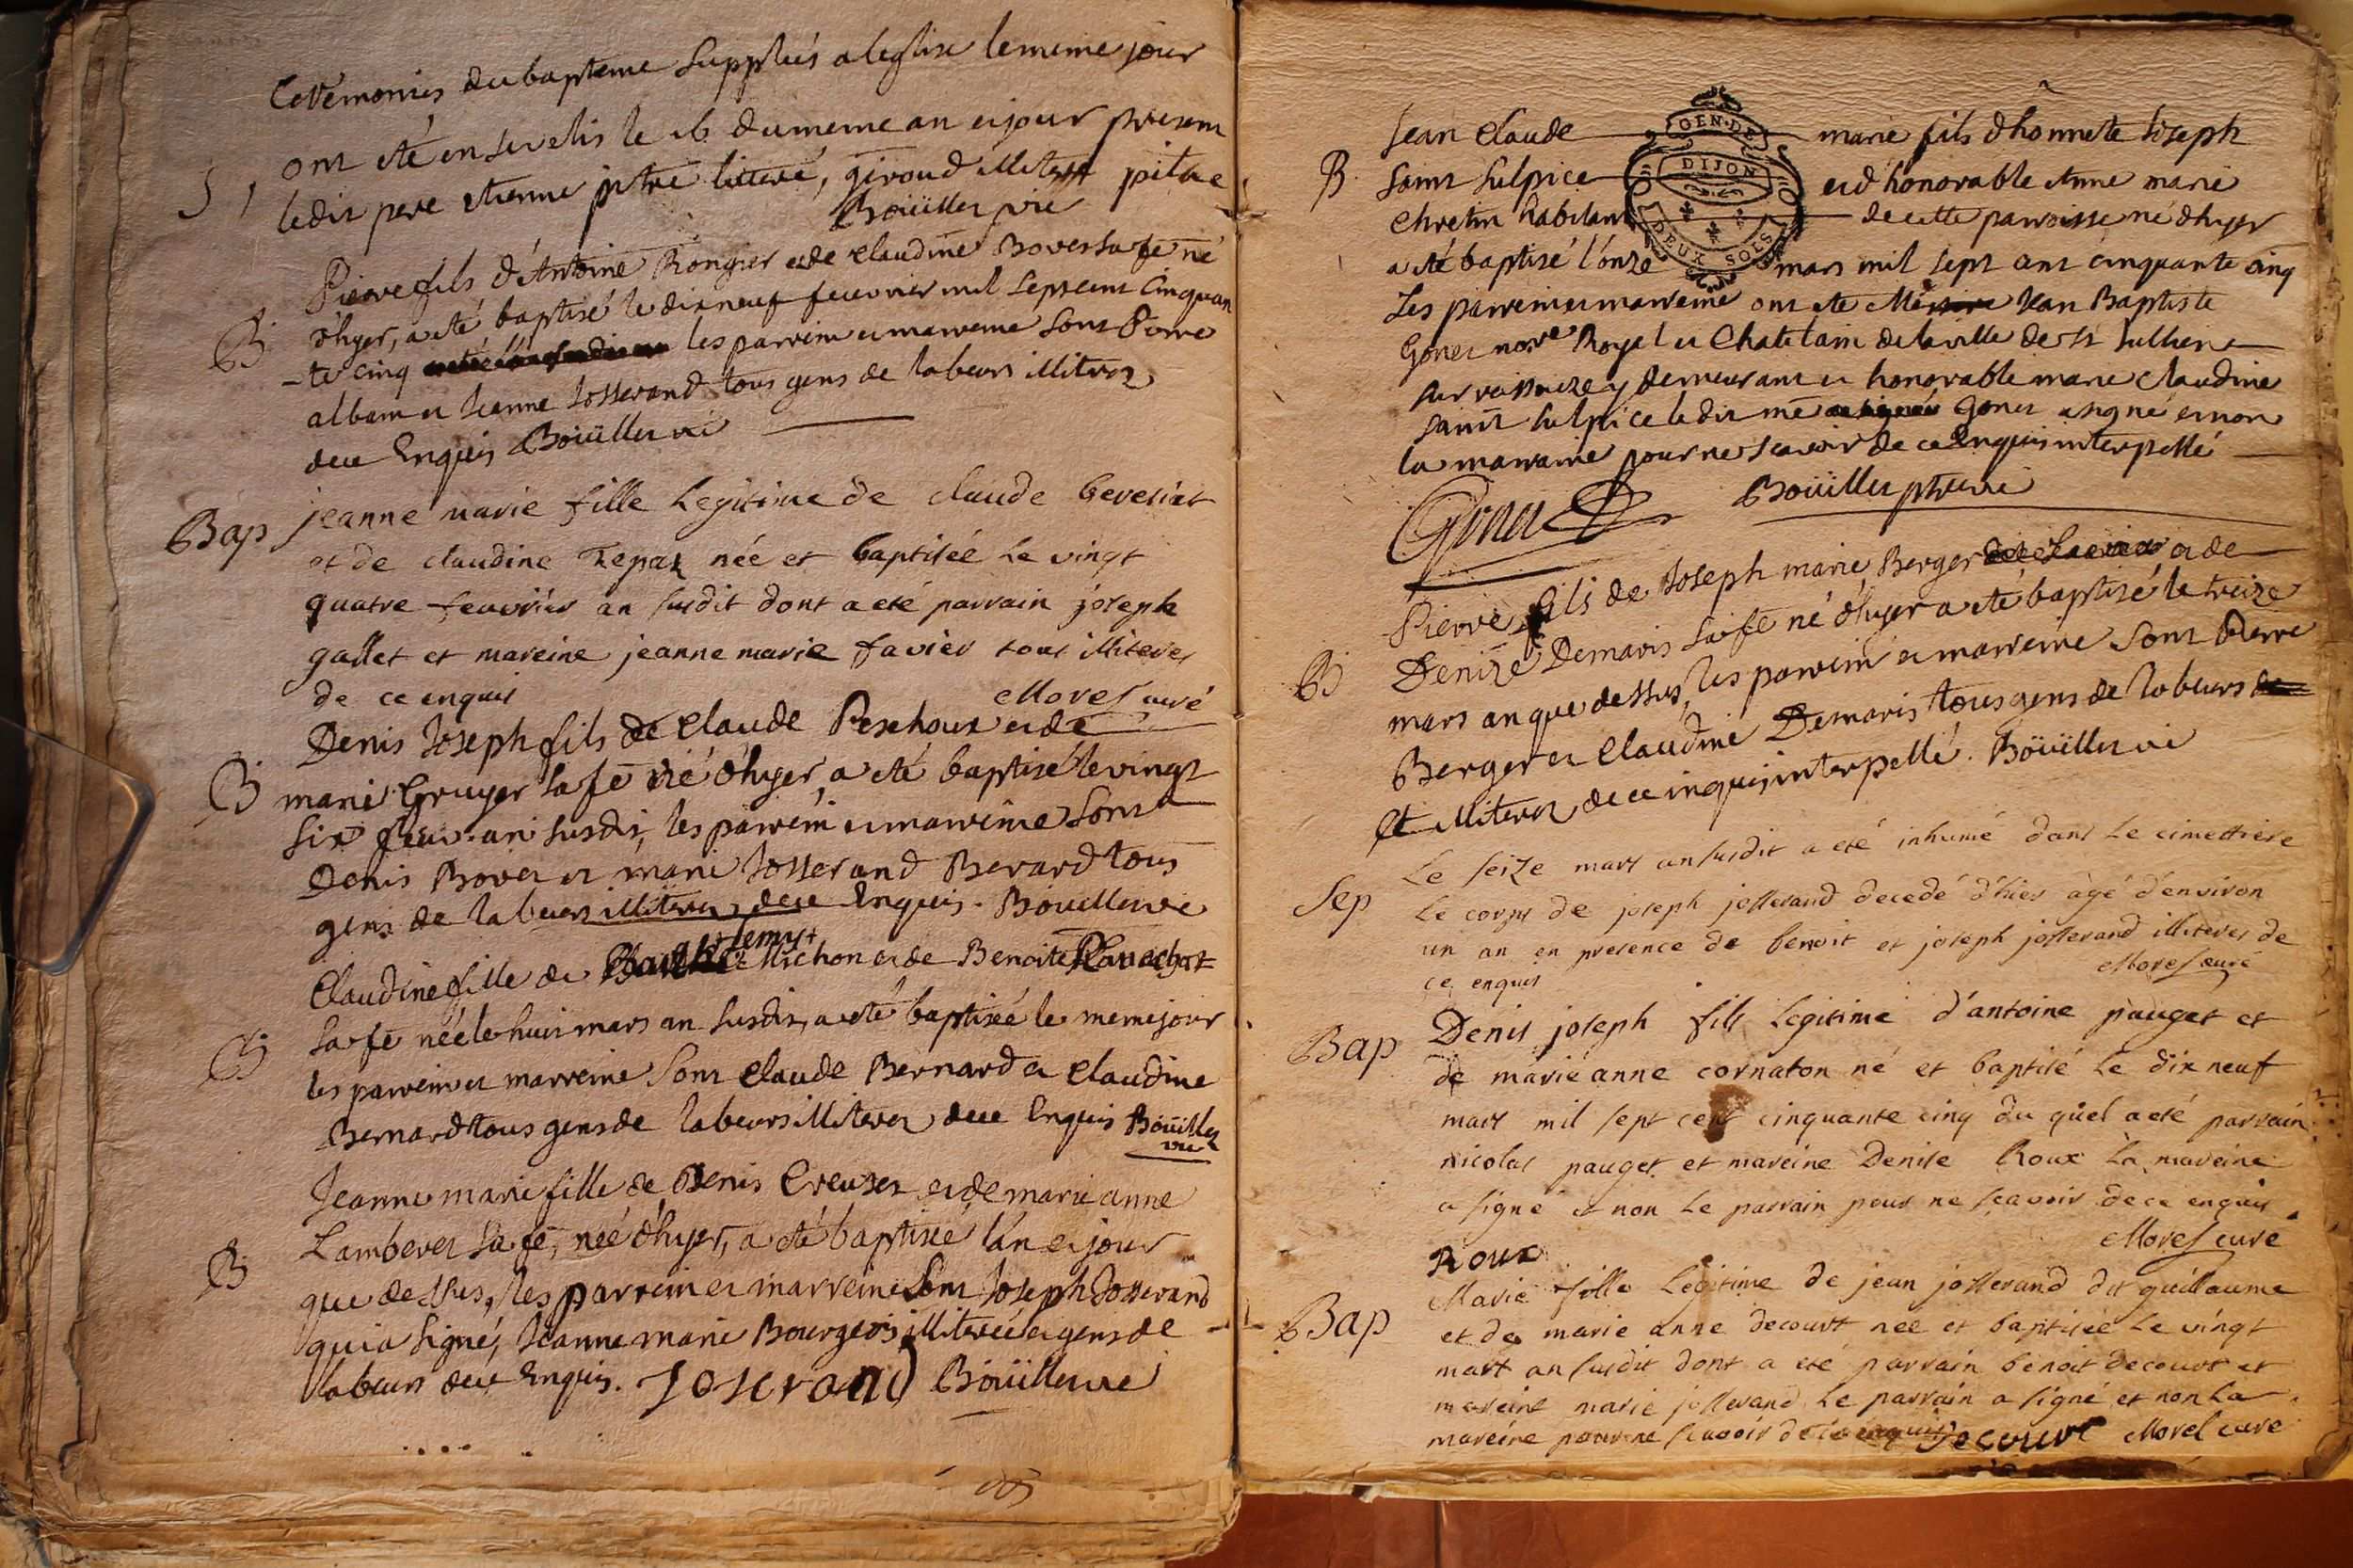 Ceremonies du bapteme supplées a leglise le meme jour
S, ont eté ensevelis le du meme an et jour presents
ledit pere etienne litteré, giroud illiteré
Boüiller vic
Pierre fils d'Antoine Rongier et de Claudine Bover sa fe né
B d'hyer, a eté baptisé le dixneuf feuvrier mil sept cent cinquan
-te cinq les parrein et marreine sont Pierre
alban et Jeanne Josserand tous gens de labeurs illiterez
de ce Enquis Boüiller vic
jeanne marie fille Legitime de claude beveriat
Bap et de claudine Tepaz née et baptisée Le vingt
quatre feuvrier an susdit dont a eté parrain joseph
gallet et mareine jeanne marie favier tous illiteres
de ce enquis Morel curé
Denis Joseph fils de Claude Peschoux et de
B marie Gruyer sa fe né d'hyer, a eté baptisé le vingt
six feuv. an susdit, les parrein et marreine sont
Denis Bover et marie Josserand Berard tous
gens de labeurs illiterez de ce Enquis. Boüiller vic
Claudine fille de Barthelemy Michon et de Benoite Planachat
B sa fe née le huit mars an susdit, a eté baptisée le meme jour
les parrein et marreine sont Claude Bernard et Claudine
Bernard tous gens de labeurs illiterez de ce Enquis Boüiller
vic
Jeanne marie fille de Denis Creuzet et de marie anne
Lamberet sa fe, née d'hyer, a eté baptisée l'an et jour
B que dessus, les parrein et marreine sont Joseph Josserand
qui a signé, Jeanne marie Bourgeois illiterée et gens de
labeurs de ce Enquis. Joserand Boüiller vic
Jean Claude marie fils d'honnete Joseph
B Saint Sulpice et d'honorable Anne marie
Chretin habitant de cette parroisse né d'hyer
a eté baptisé l'onze mars mil sept cent cinquante cinq
GEN. DE DIJON
DEUX SOLS
Les parrein et marreine ont eté Jean Baptiste
Gonet nore Royal et Chatelain de la ville de St Jullien
sur reissouze y demeurant et honorable marie Claudine
Saint Sulpice ledit me Gonet a signé et non
la marraine pour ne scavoir de ce Enquis interpellé
Gonet Boüiller ptre vic
Pierre fils de Joseph marie Berger et de
B Denize Demaris sa fe né d'hyer a eté baptisé le treize
mars an que dessus, les parrein et marreine sont Pierre
Berger et Claudine Demaris tous gens de labeurs
et illiterez de ce inquis interpellé. Boüiller vic
Le seize mars an susdit a eté inhumé dans Le cimettiere
Sep Le corps de joseph josserand decedé d'hier agé d'environ
un an en presence de benoit et joseph josserand illiteres de
ce enquis Morel curé
Bap Denis joseph fils Legitime d'antoine pauget et
de marie anne cornaton né et baptisé Le dix neuf
mars mil sept cent cinquante cinq du quel a eté parrain
nicolas pauget et mareine Denise Roux La mareine
a signé et non Le parrain pour ne sçavoir de ce enquis
Roux Morel curé
Marie fille Legitime de jean josserand dit guillaume
Bap et de marie anne decourt née et baptisée Le vingt
mars an susdit dont a eté parrain benoit decourt et
mareine marie josserand Le parrain a signé et non La
mareine pour ne sçavoir de ce enquis Decourt Morel curé